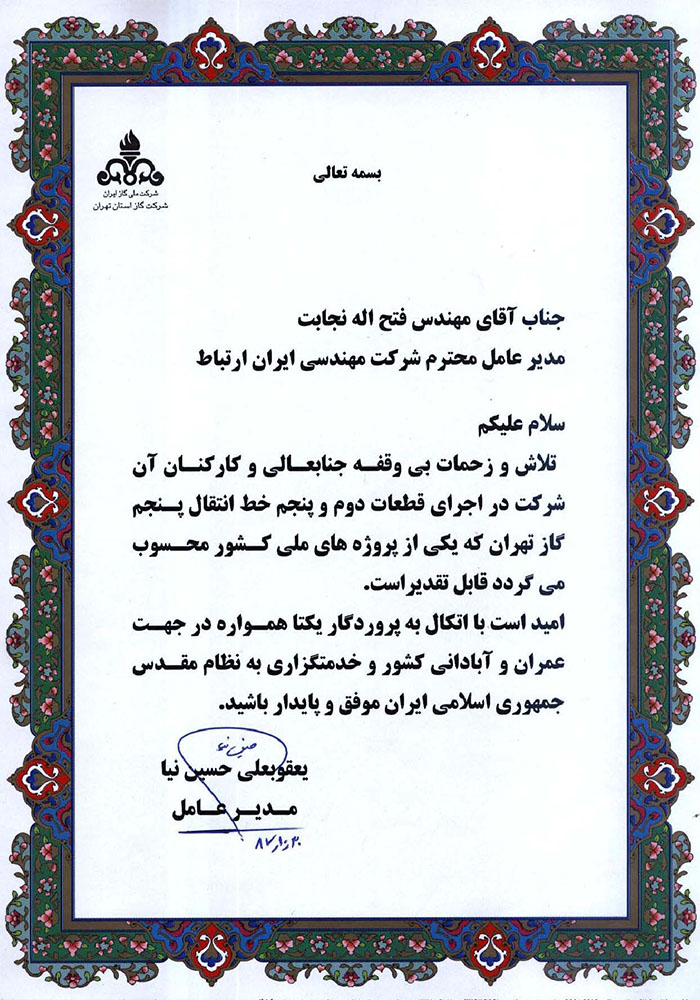 بسمه تعالی
شرکت ملی گاز ایران
شرکت گاز استان تهران
جناب آقای مهندس فتح اله نجابت
مدیر عامل محترم شرکت مهندسی ایران ارتباط
سلام علیکم
تلاش و زحمات بی وقفه جنابعالی و کارکنان آن
شرکت در اجرای قطعات دوم و پنجم خط انتقال پنجم
گاز تهران که یکی از پروژه های ملی کشور محسوب
می گردد قابل تقدیراست.
امید است با اتکال به پروردگار یکتا همواره در جهت
عمران و آبادانی کشور و خدمتگزاری به نظام مقدس
جمهوری اسلامی ایران موفق و پایدار باشید.
یعقوبعلی حسین نیا
مدیر عامل